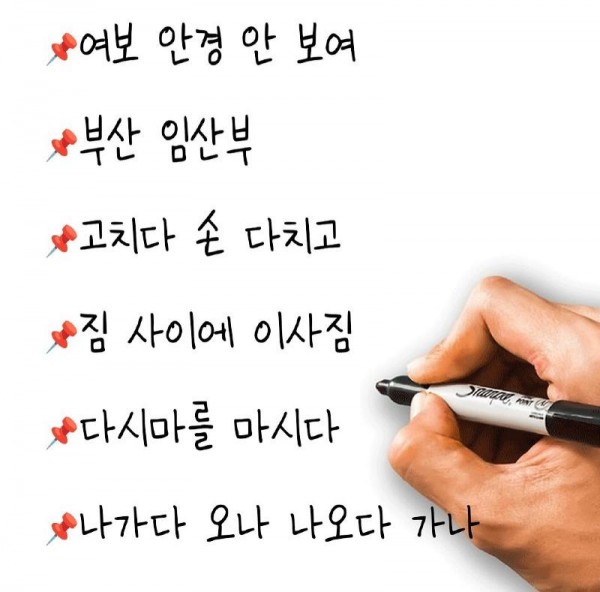 여보 안경 안 보여
부산 임산부
고치다 손 다치고
짐 사이에 이사짐
다시마를 마시다
나가다 오나 나오다 가나
Sharpie